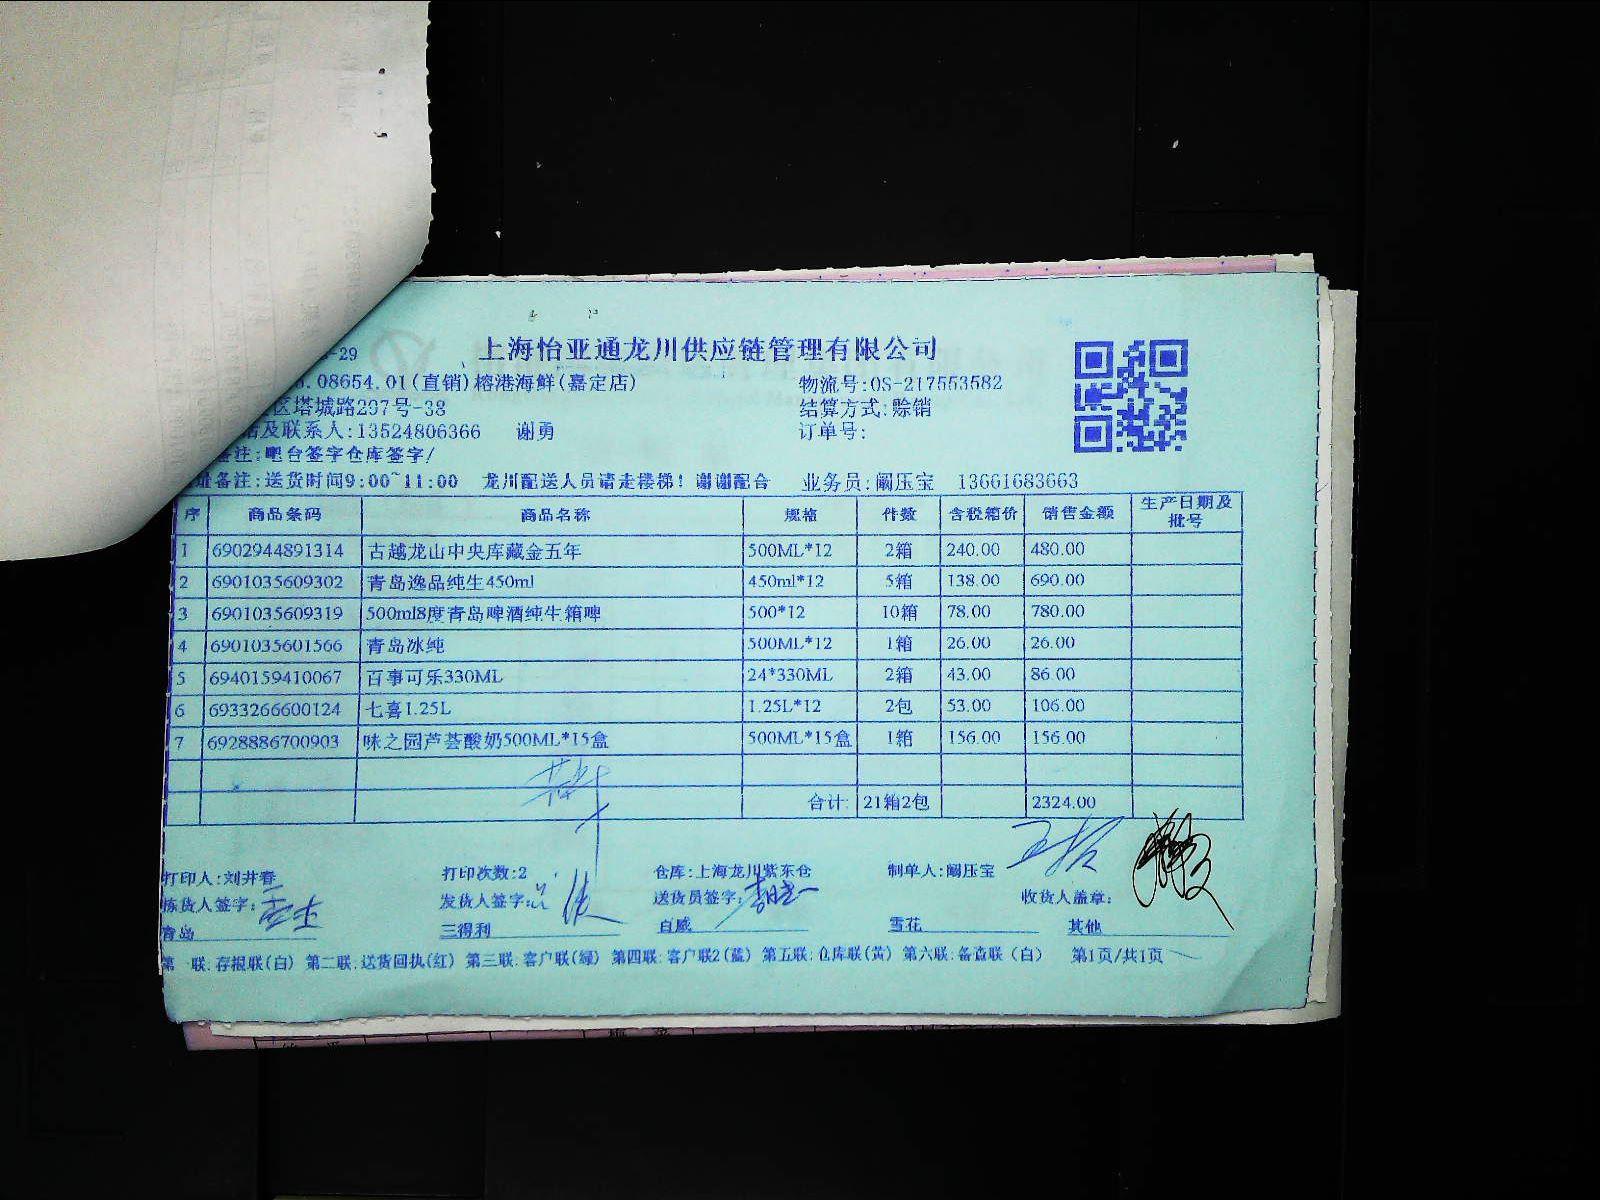 -29 上海怡亚通龙川供应链管理有限公司
.08654.01(直销)榕港海鲜(嘉定店) 物流号:OS-217553582
区塔城路297号-38 结算方式:赊销
话及联系人:13524806366 谢勇 订单号:
备注:吧台签字仓库签字/
址备注:送货时间9:00~11:00 龙川配送人员请走楼梯!谢谢配合 业务员:阚压宝 13661683663
序 商品条码 商品名称 规格 件数 含税箱价 销售金额 生产日期及批号
1 6902944891314 古越龙山中央库藏金五年 500ML*12 2箱 240.00 480.00
2 6901035609302 青岛逸品纯生450ml 450ml*12 5箱 138.00 690.00
3 6901035609319 500ml8度青岛啤酒纯生箱啤 500*12 10箱 78.00 780.00
4 6901035601566 青岛冰纯 500ML*12 1箱 26.00 26.00
5 6940159410067 百事可乐330ML 24*330ML 2箱 43.00 86.00
6 6933266600124 七喜1.25L 1.25L*12 2包 53.00 106.00
7 6928886700903 味之园芦荟酸奶500ML*15盒 500ML*15盒 1箱 156.00 156.00
合计: 21箱2包 2324.00
打印人:刘井春 打印次数:2 仓库:上海龙川紫东仓 制单人:阚压宝
拣货人签字: 发货人签字: 送货员签字: 收货人盖章:
青岛 三得利 百威 雪花 其他
第一联:存根联(白) 第二联:送货回执(红) 第三联:客户联(绿) 第四联:客户联2(蓝) 第五联:仓库联(黄) 第六联:备查联(白) 第1页/共1页